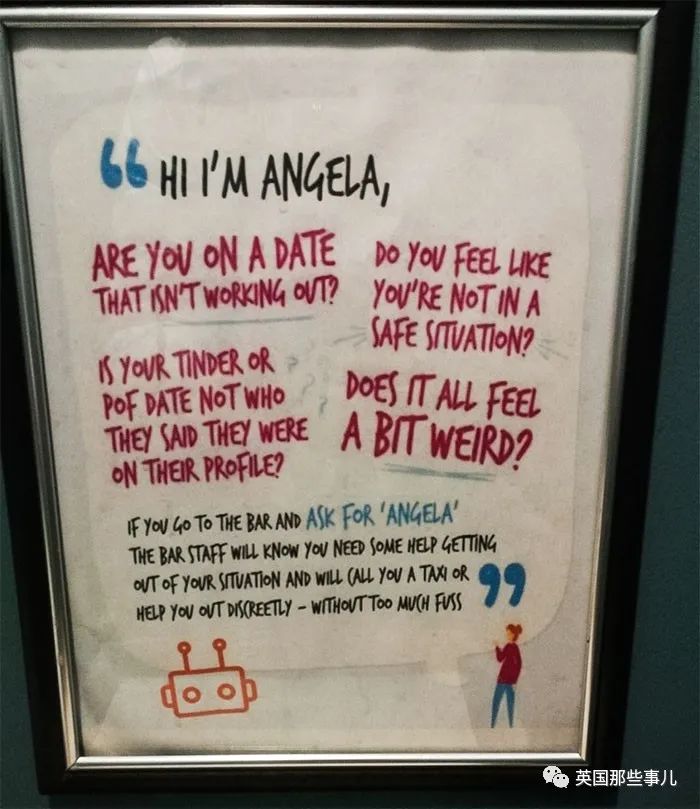 “ HI I'M ANGELA,
ARE YOU ON A DATE
THAT ISN'T WORKING OUT?
DO YOU FEEL LIKE
YOU'RE NOT IN A
SAFE SITUATION?
IS YOUR TINDER OR
POF DATE NOT WHO
THEY SAID THEY WERE
ON THEIR PROFILE?
DOES IT ALL FEEL
A BIT WEIRD?
IF YOU GO TO THE BAR AND ASK FOR 'ANGELA'
THE BAR STAFF WILL KNOW YOU NEED SOME HELP GETTING
OUT OF YOUR SITUATION AND WILL CALL YOU A TAXI OR
HELP YOU OUT DISCREETLY – WITHOUT TOO MUCH FUSS ”
英国那些事儿